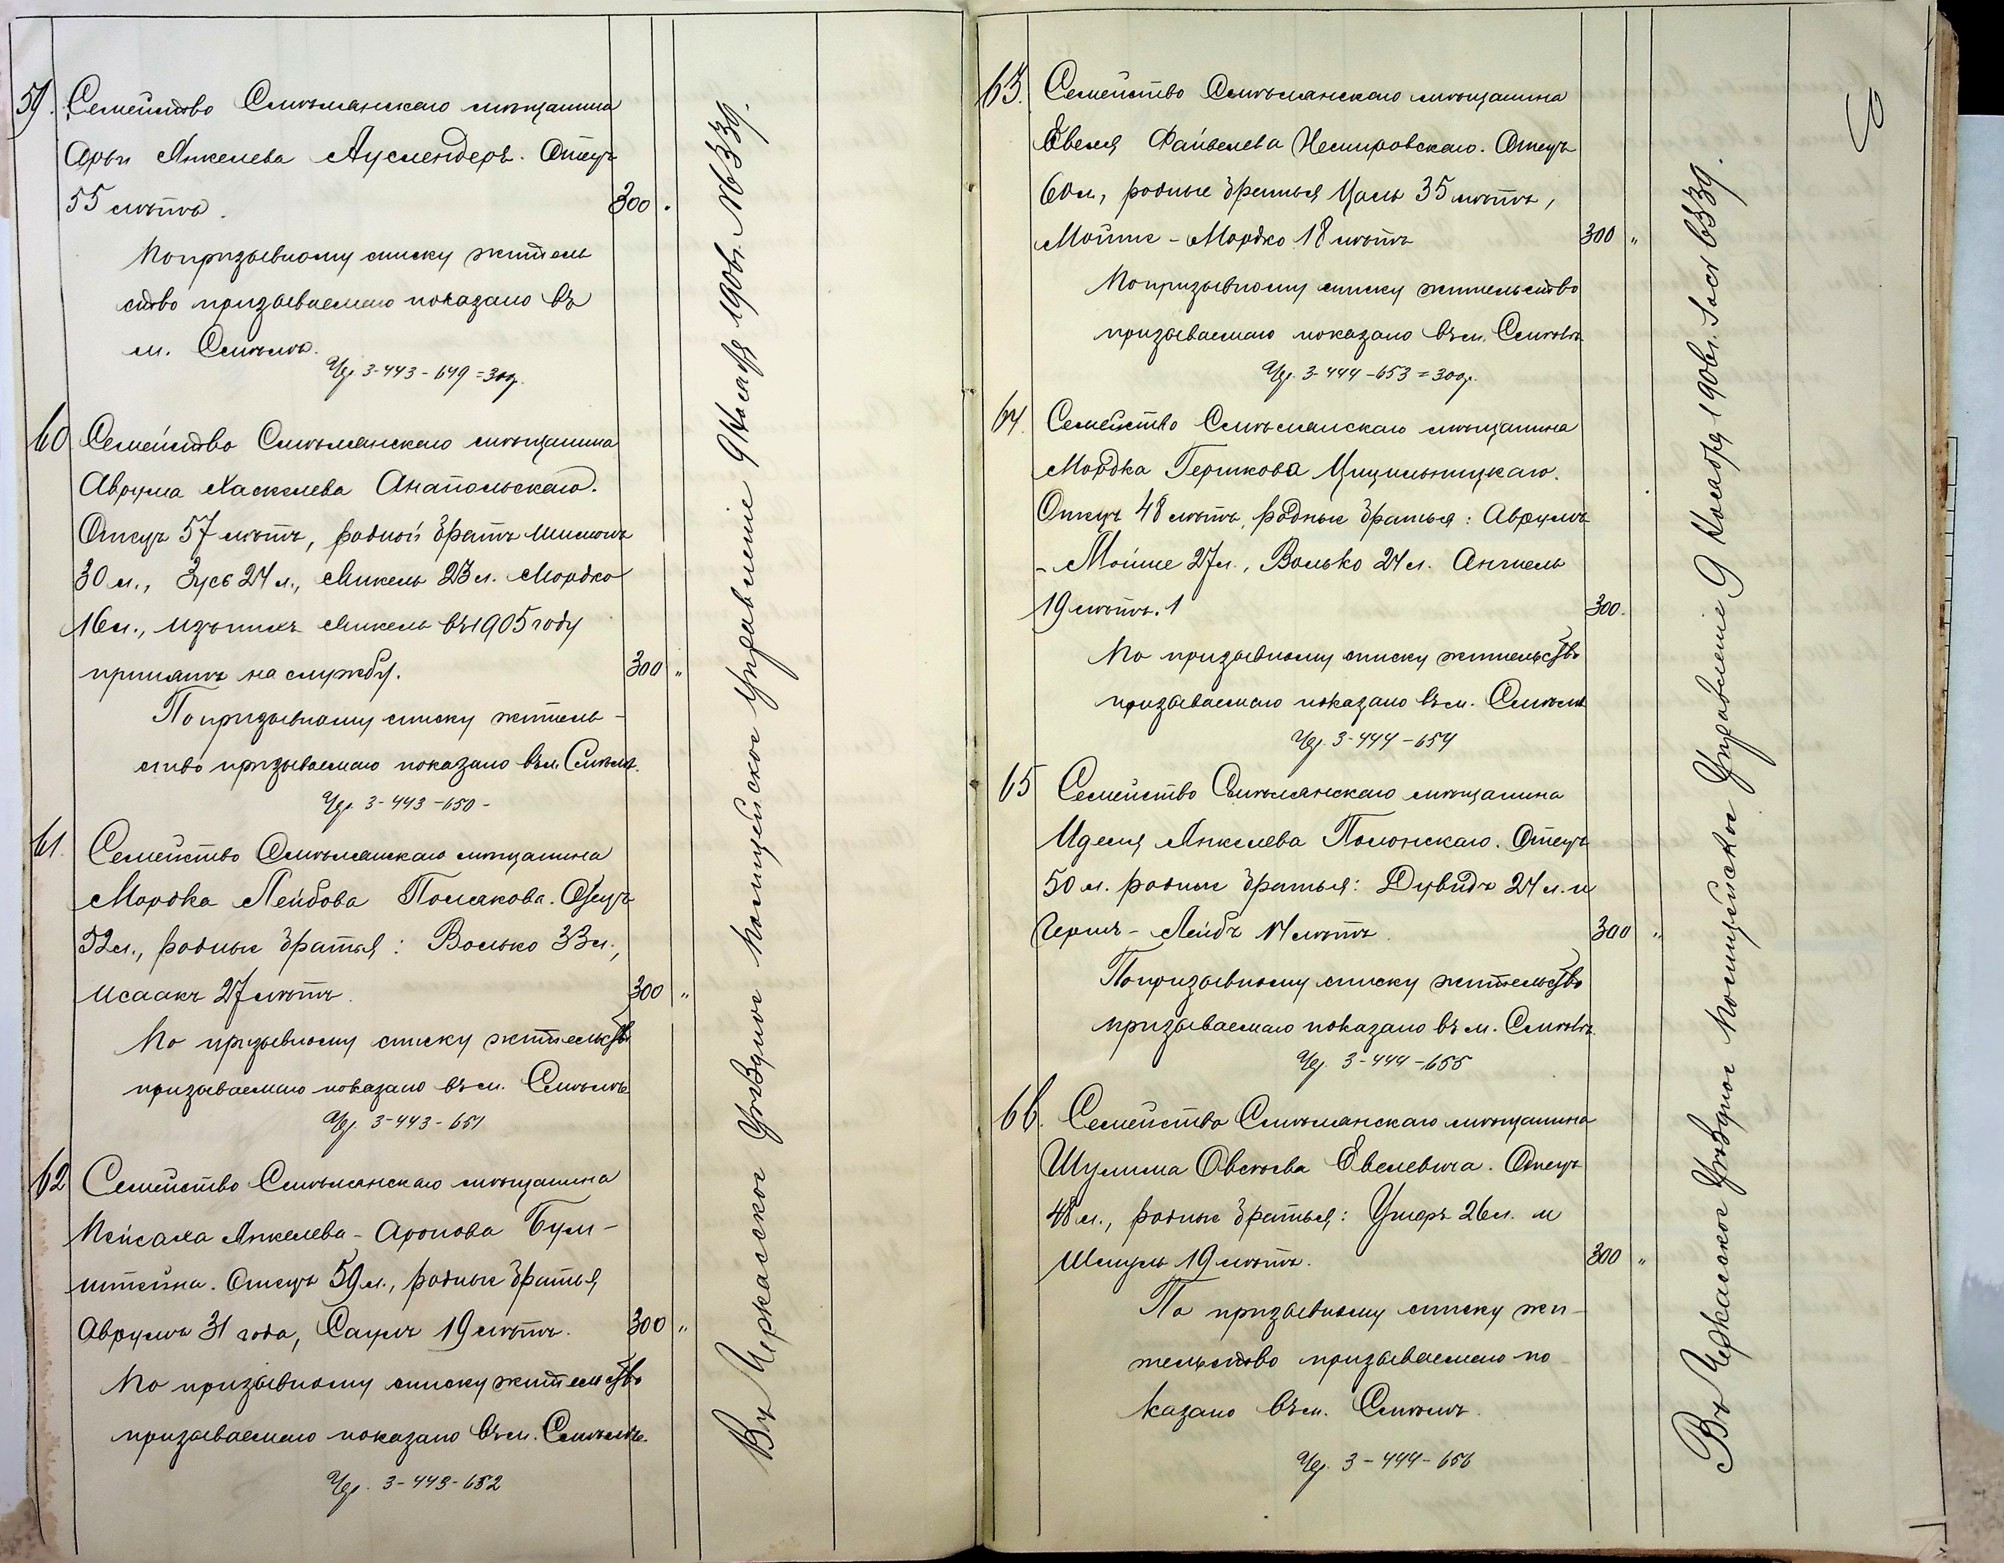 59. Семейство Смѣлянскаго мѣщанина
Арьи Янкелева Ауслендеръ. Отецъ
55 лѣтъ. 300 "
По призывному списку житель
ство призываемаго показано въ
м. Смѣлѣ.
Чер. 3-443-649=300р.
60 Семейство Смѣлянскаго мѣщанина
Аврума Хаскелева Анапольскаго.
Отецъ 57 лѣтъ, родной братъ Шимонъ
30 л., Зусь 24 л., Микель 23 л. Мордко
16 л., изъ нихъ Микель въ 1905 году
принятъ на службу. 300 "
По призывному списку житель-
ство призываемаго показано въ м. Смѣлѣ.
Чер. 3-443-650-
61. Семейство Смѣлянскаго мѣщанина
Мордка Лейбова Полякова. Отецъ
52 л., родные братья: Волько 33 л.,
Исаакъ 27 лѣтъ. 300 "
По призывному списку жительство
призываемаго показано въ м. Смѣлѣ
Чер. 3-443-651
62 Семейство Смѣлянскаго мѣщанина
Пейсаха Янкелева-Аронова Бум-
штейна. Отецъ 59 л., родные братья
Аврумъ 31 года, Саулъ 19 лѣтъ. 300 "
По призывному списку жительство
призываемаго показано въ м. Смѣлѣ.
Чер. 3-443-652
Въ Черкасское Уѣздное Полицейское Управленіе 9 Ноября 190 г. № 6339.
63. Семейство Смѣлянскаго мѣщанина
Евеля Файвелева Немировскаго. Отецъ
60 л, родные братья Цаль 35 лѣтъ,
Мойше-Мордко 18 лѣтъ 300 "
По призывному списку жительство
призываемаго показано въ м. Смѣлѣ
Чер. 3-444-653=300р.
64. Семейство Смѣлянскаго мѣщанина
Мордка Гершкова Цицильницкаго.
Отецъ 48 лѣтъ, родные братья: Аврумъ
-Мойше 27 л., Волько 24 л. Анчель
19 лѣтъ. 300.
По призывному списку жительство
призываемаго показано въ м. Смѣлѣ
Чер. 3-444-654
65 Семейство Смѣлянскаго мѣщанина
Иделя Янкелева Полонскаго. Отецъ
50 л. родные братья: Дувидъ 24 л. и
Гершъ-Лейбъ 14 лѣтъ. 300 "
По призывному списку жительство
призываемаго показано въ м. Смѣлѣ.
Чер. 3-444-655
66. Семейство Смѣлянскаго мѣщанина
Шулима Овсѣева Евелевича. Отецъ
48 л., родные братья: Ушеръ 26 л. и
Шмуль 19 лѣтъ. 300 "
По призывному списку жи-
тельство призываемаго по
казано въ м. Смѣлѣ.
Чер. 3-444-656
Въ Черкасское Уѣздное Полицейское Управленіе 9 Ноября 190 г. 6339.